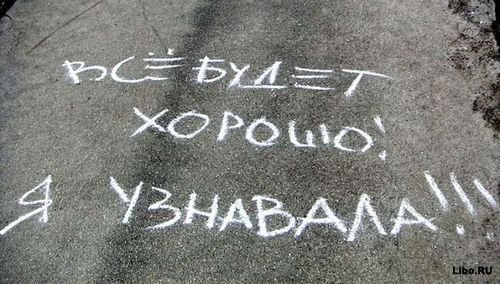 ВСЁ БУДЕТ
ХОРОШО!
Я УЗНАВАЛА!!!
Libo.RU